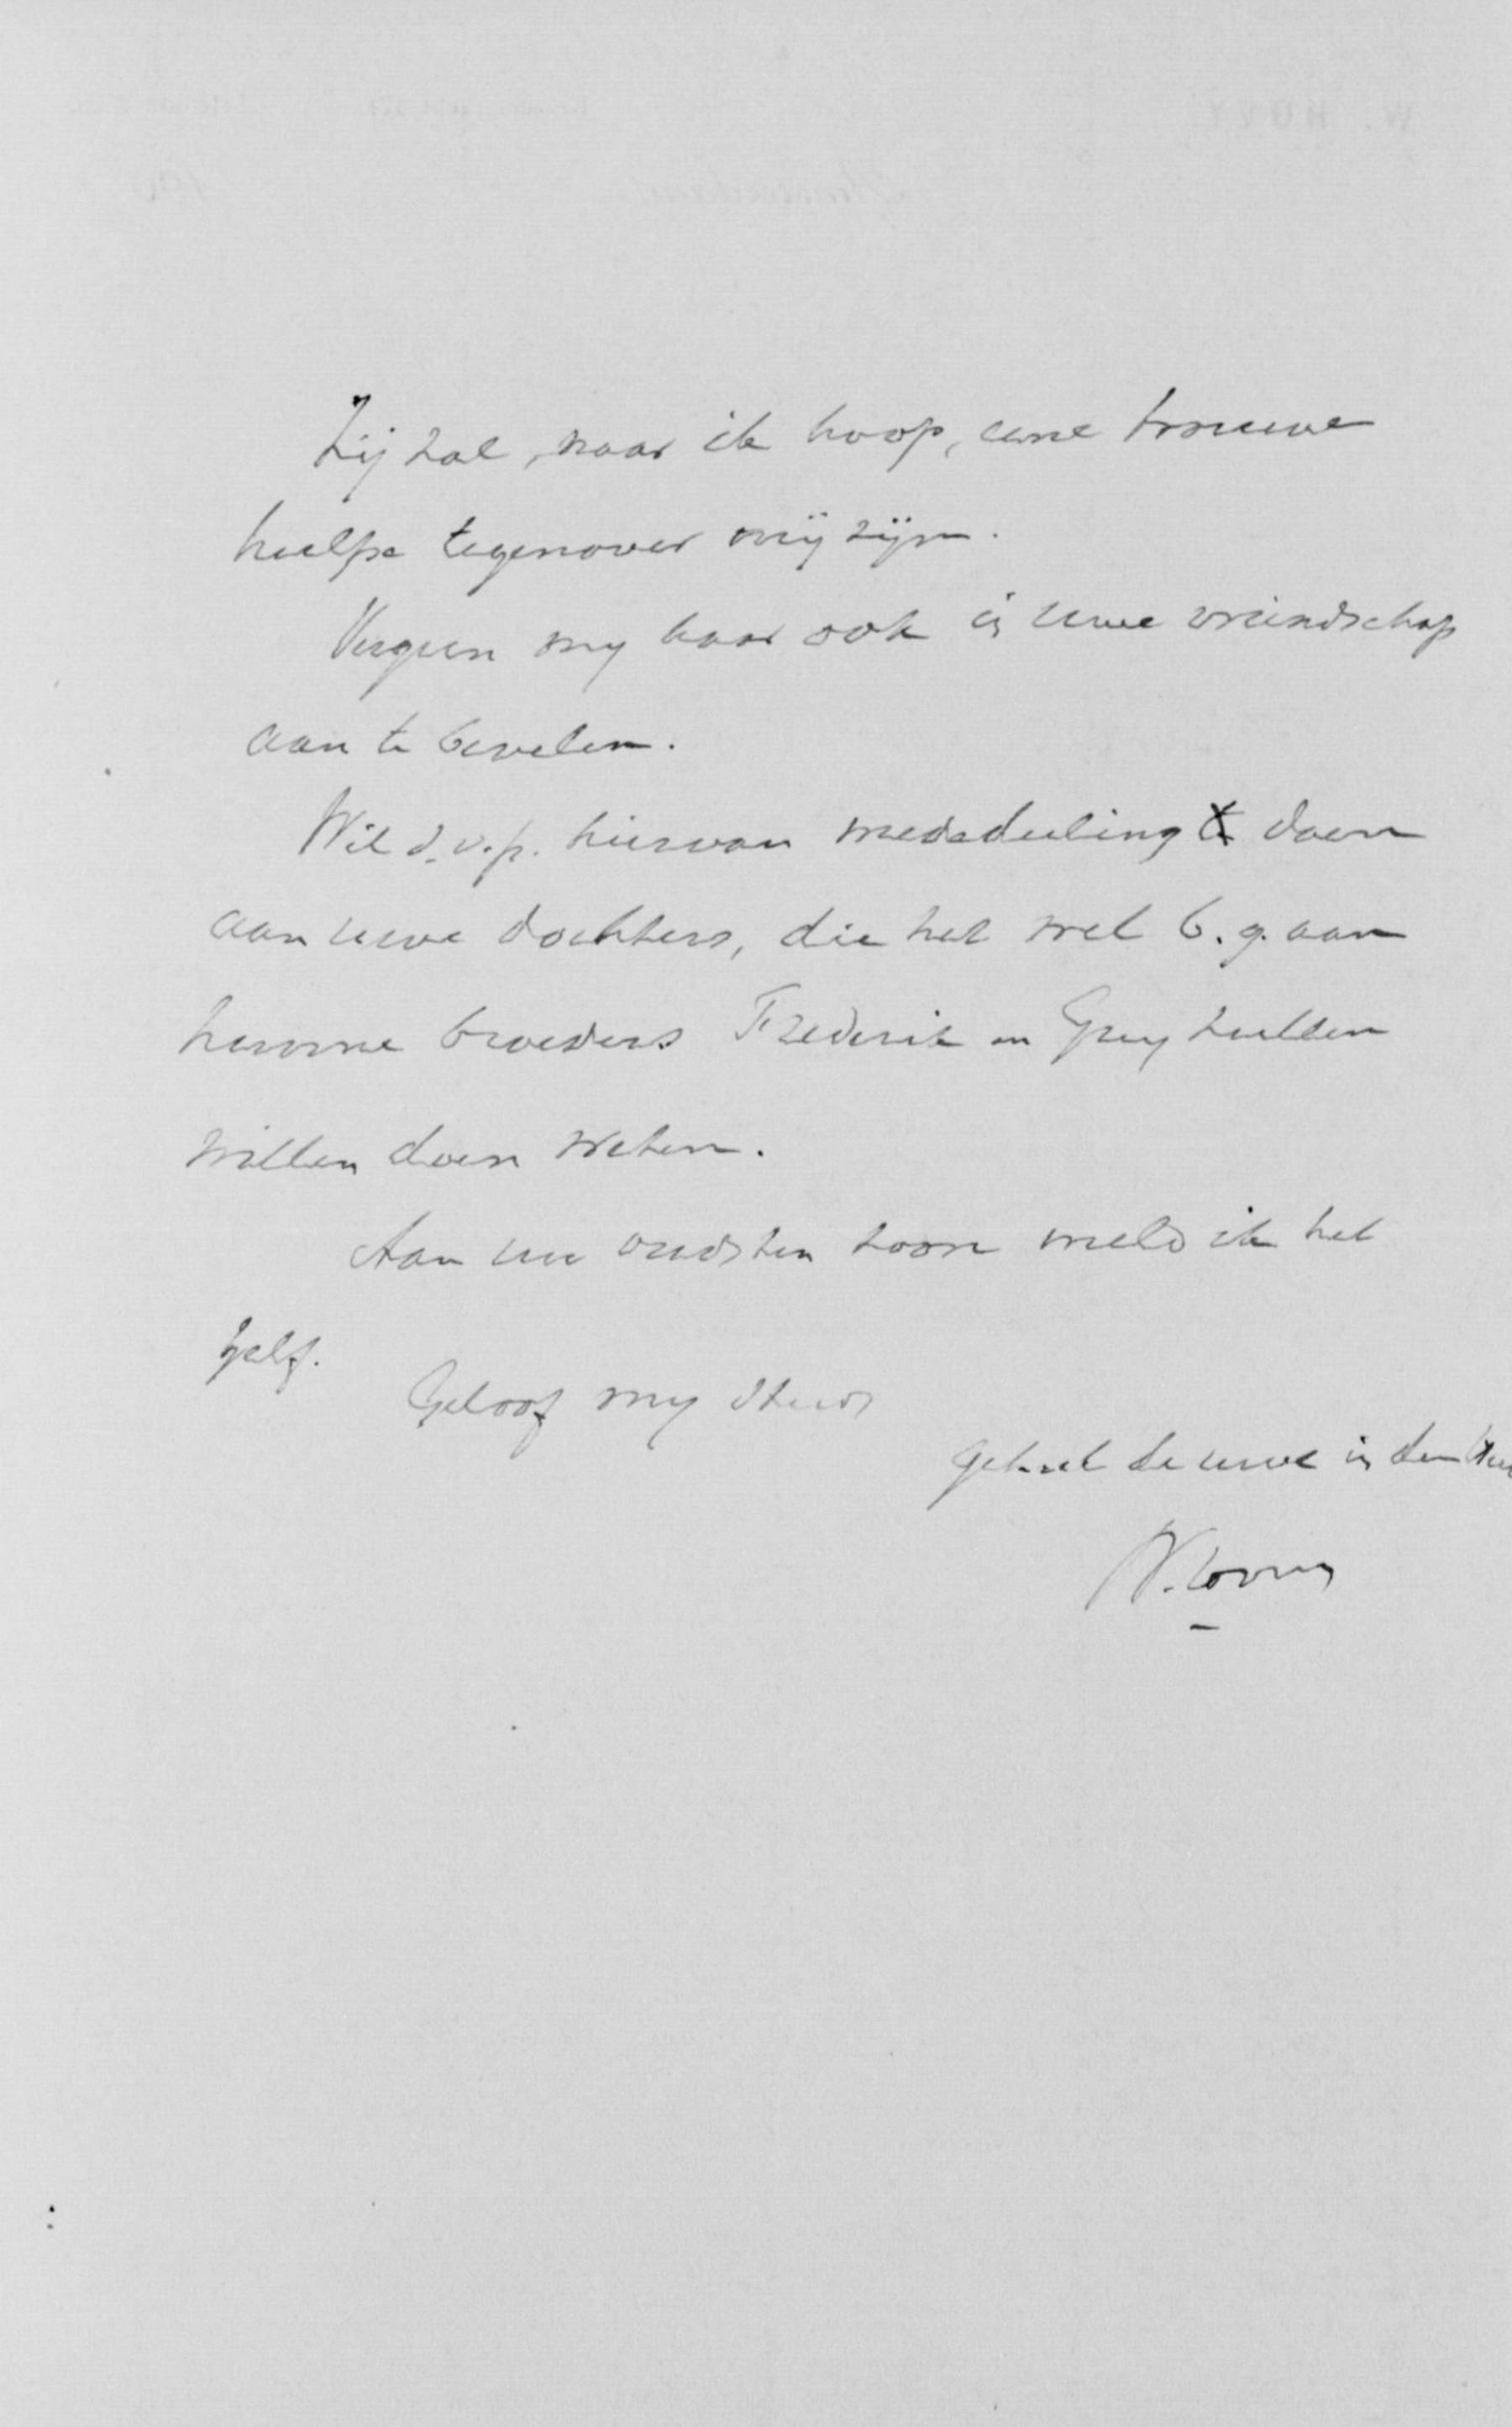 Zij zal, naar ik hoop, eene trouwe
hulpe tegenover mij zijn.
Vergun my haar ook in uwe vriendschap
aan te bevelen.
Wil s.v.p. hiervan mededeeling doen
aan uwe dochters, die het wel b.g. aan
hunne broeders Frederik en Guy zullen
willen doen weten.
Aan uw oudsten zoon meld ik het
zelf.
Geloof my steeds
geheel de uwe in den
W. Hovy